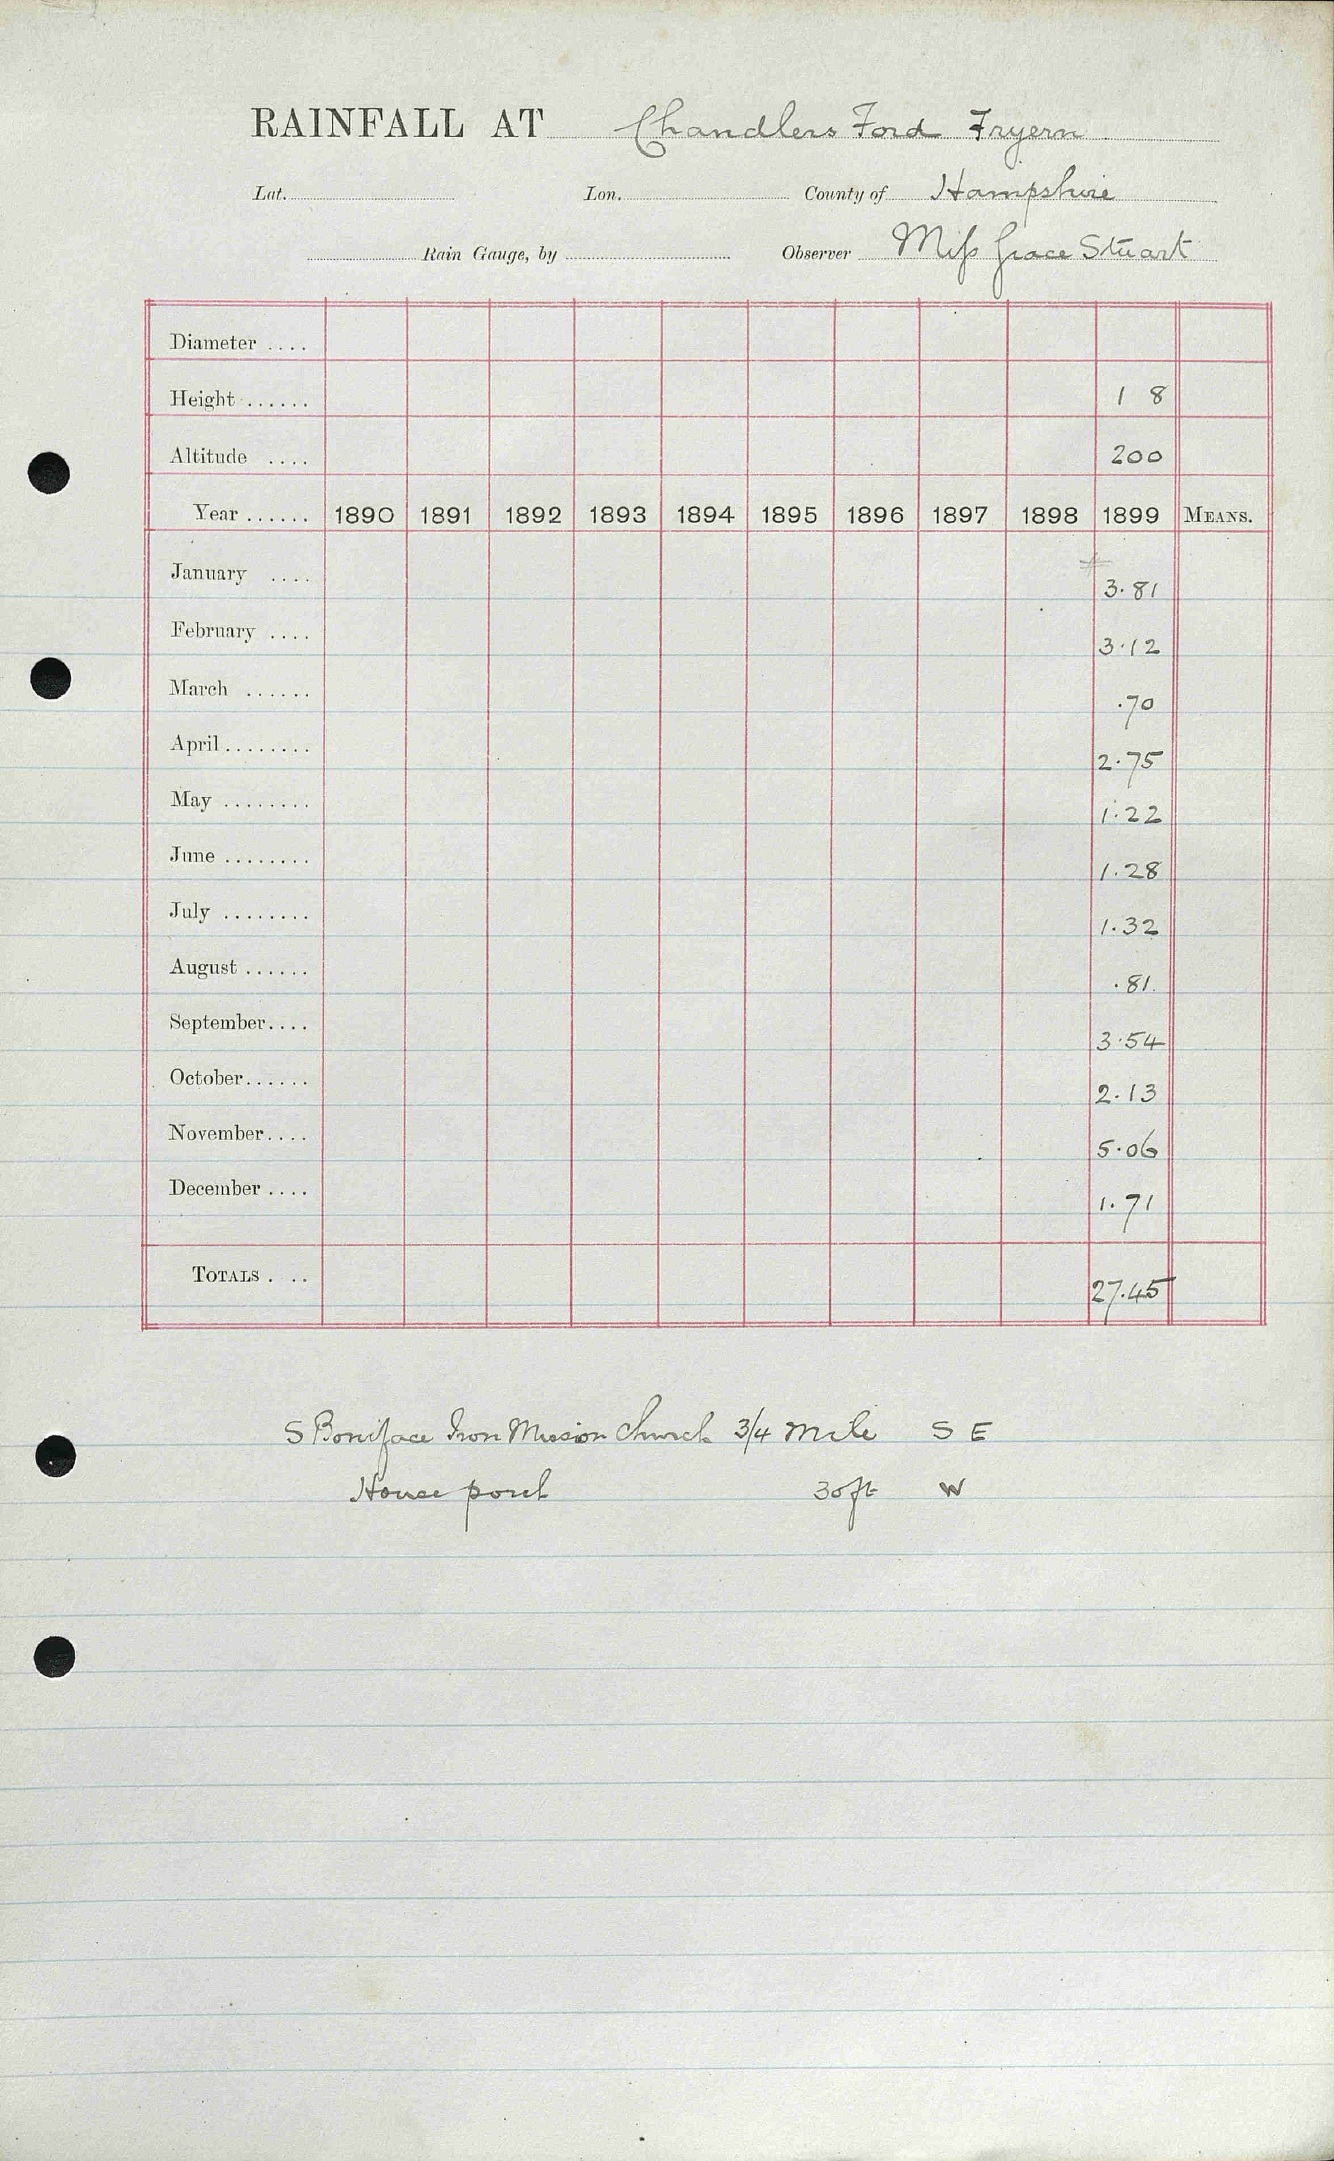 RAINFALL AT Chandlers Ford Fryern
Lat. Lon. County of Hampshire
Rain Gauge, by Observer Miss Grace Stuart
Diameter ....
Height ...... 1 8
Altitude .... 200
Year ...... 1890 1891 1892 1893 1894 1895 1896 1897 1898 1899 MEANS.
January .... 3.81
February .... 3.12
March ...... .70
April ........ 2.75
May ........ 1.22
June ........ 1.28
July ........ 1.32
August ...... .81
September.... 3.54
October...... 2.13
November.... 5.06
December .... 1.71
TOTALS . .. 27.45
S Boniface Iron Mission Church 3/4 mile S E
House porch 30ft W